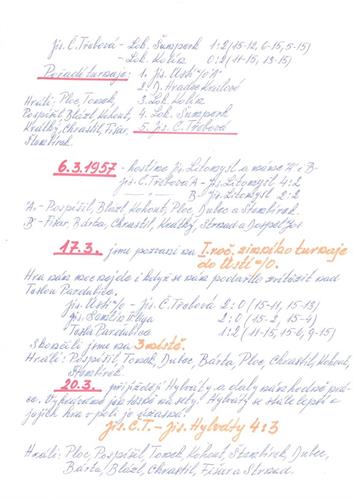 Jis. Č. Třebová - Lok. Šumperk 1:2 (15-12, 6-15, 5-15)
- Lok. Kolín 0:2 (11-15, 13-15)
Pořadí turnaje: 1. Jis. Ústí n/O "A"
2. D. Hradec Králové
Hráli: Ploc, Tomek, 3. Lok. Kolín
Pospíšil, Blažl, Kohout, 4. Lok. Šumperk
Kratky, Chrastil, Fikar, 5. Jis. Č. Třebová
Stembirek.
6.3.1957 - hostíme Jis. Litomyšl a máme "A" i B -
Jis. Č. Třebová A - Jis. Litomyšl 4:2
B - Jis. Litomyšl 2:2
"A" - Pospíšil, Blažl, Kohout, Ploc, Dubec a Stembirek.
"B" - Fikar, Bárta, Chrastil, Kratky, Strnad a Dospěl Jos.
17.3. jsme pozvani na I. roč. zimního turnaje
do Ústí n/O.
Hra nám moc nejde i když se nám podařilo zvítězit nad
Teslou Pardubice.
Jis. Ústí n/O - Jis. Č. Třebová 2:0 (15-11, 15-13)
2:0 (15-2, 15-4)
Tesla Pardubice 1:2 (11-15, 15-6, 9-15)
Skončili jsme na 3 místě.
Hráli: Pospíšil, Tomek, Dubec, Bárta, Ploc, Chrastil, Kohout,
Stembirek.
20.3. přijíždějí Hylváty a daly nám hodně práce.
Hylváty se stále lepší a
jejich hra v poli je úžasná.
Jis. Č.T. - Jis. Hylváty 4:3
Hráli: Ploc, Pospíšil, Tomek, Kohout, Stembirek, Dubec,
Bárta, Blažl, Chrastil, Fikar a Strnad.